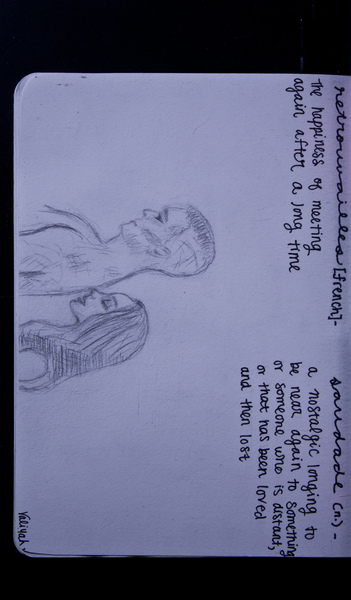 retrouvailles [french]-
the happiness of meeting
again after a long time
saudade (n) -
a nostalgic longing to
be near again to something
or someone who is distant,
or that has been loved
and then lost
Valiyah